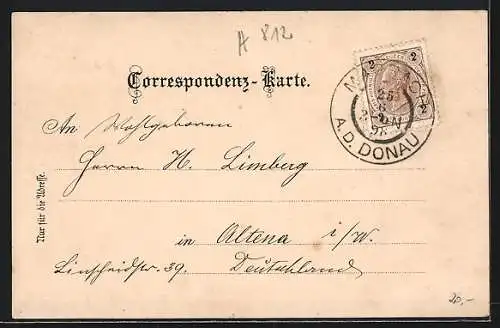 A 812
Correspondenz-Karte.
2 2
25
98
A. D. DONAU
2
An Wohlgeboren
Herrn H. Limberg
in Altena i/W.
Linscheidstr. 39. Deutschland
Nur für die Adresse.
20,-